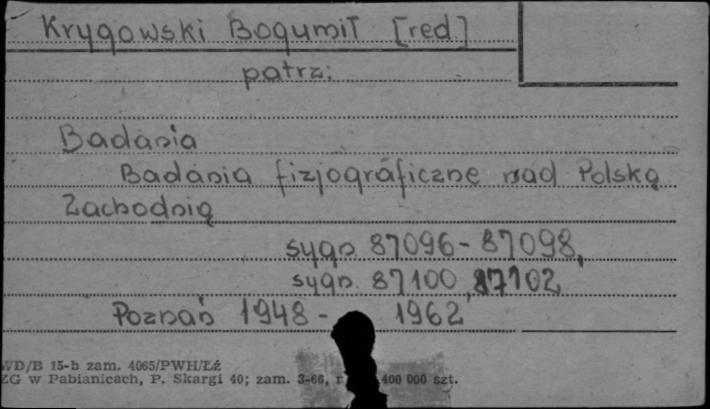 Krygowski Bogumił [red]
patrz:
Badania
Badania fizjograficzne nad Polską
Zachodnią
sygn. 87096-87098,
sygn. 87100, 87102
Poznań 1948 - 1962
WD/B 15-b zam. 4065/PWH/Łź
ZG w Pabianicach, P. Skargi 40; zam. 3-66, r 400 000 szt.